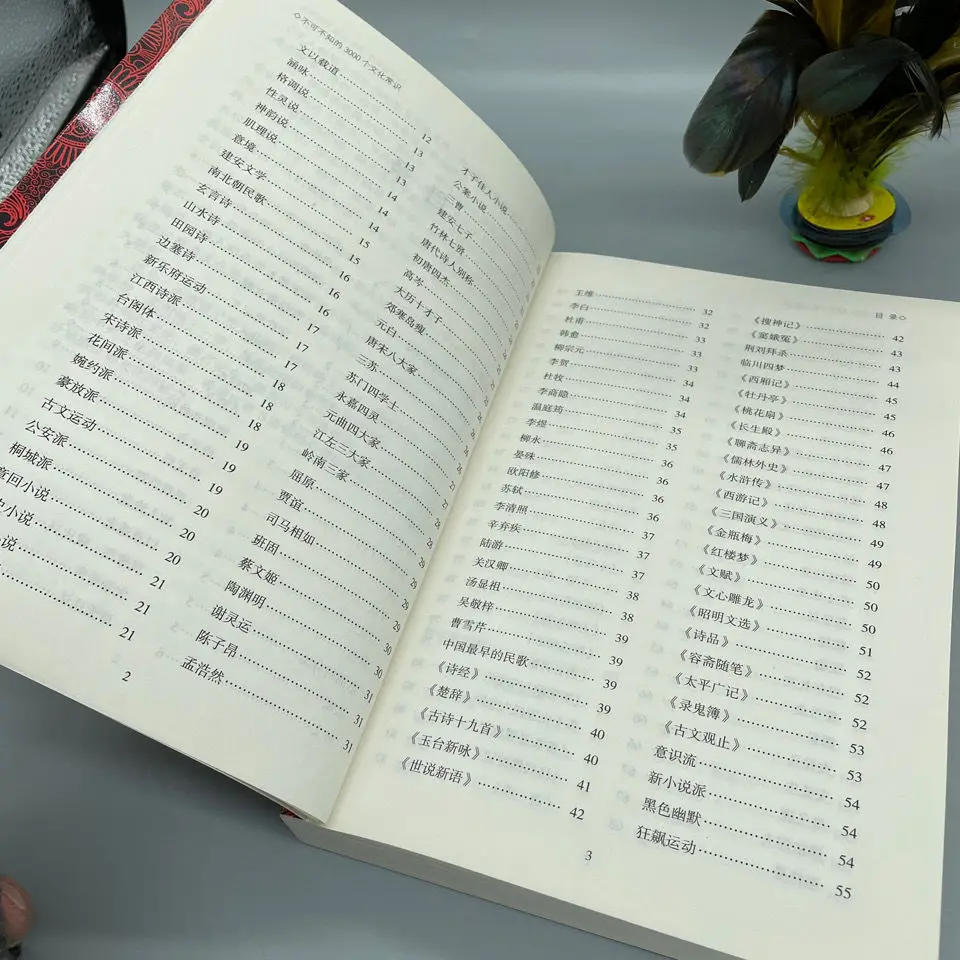 ◇不可不知的3000个文化常识
文以载道
涵咏 12
格调说 13
性灵说 13
神韵说 14
肌理说 14
意境 15
建安文学
南北朝民歌 16
玄言诗 16
山水诗 17
田园诗
边塞诗 17
新乐府运动 18
江西诗派 18
台阁体
宋诗派 19
花间派 19
婉约派 19
豪放派 20
古文运动 20
公安派 20
桐城派 21
章回小说 21
小说 21
才子佳人小说
公案小说
三曹
建安七子
竹林七贤
唐代诗人别称
初唐四杰
高岑
大历十才子
郊寒岛瘦
元白
唐宋八大家
三苏
苏门四学士
永嘉四灵
元曲四大家
江左三大家
岭南三家
屈原
贾谊
司马相如 29
班固 29
蔡文姬 29
陶渊明 30
谢灵运 30
陈子昂 31
孟浩然 31
2
目 录◇
王维 32
李白 32
杜甫 33
韩愈 33
柳宗元 33
李贺 34
杜牧 34
李商隐 34
温庭筠 35
李煜 35
柳永 36
晏殊 36
欧阳修 36
苏轼 36
李清照 37
辛弃疾 37
陆游 37
关汉卿 38
汤显祖 38
吴敬梓 39
曹雪芹 39
中国最早的民歌 39
《诗经》 39
《楚辞》 40
《古诗十九首》 40
《玉台新咏》 41
《世说新语》 42
《搜神记》 42
《窦娥冤》 43
荆刘拜杀 43
临川四梦 44
《西厢记》 45
《牡丹亭》 45
《桃花扇》 46
《长生殿》 46
《聊斋志异》 47
《儒林外史》 47
《水浒传》 48
《西游记》 48
《三国演义》 49
《金瓶梅》 49
《红楼梦》 50
《文赋》 50
《文心雕龙》 50
《昭明文选》 51
《诗品》 52
《容斋随笔》 52
《太平广记》 52
《录鬼簿》 53
《古文观止》 53
意识流 54
新小说派 54
黑色幽默 54
狂飙运动 55
3